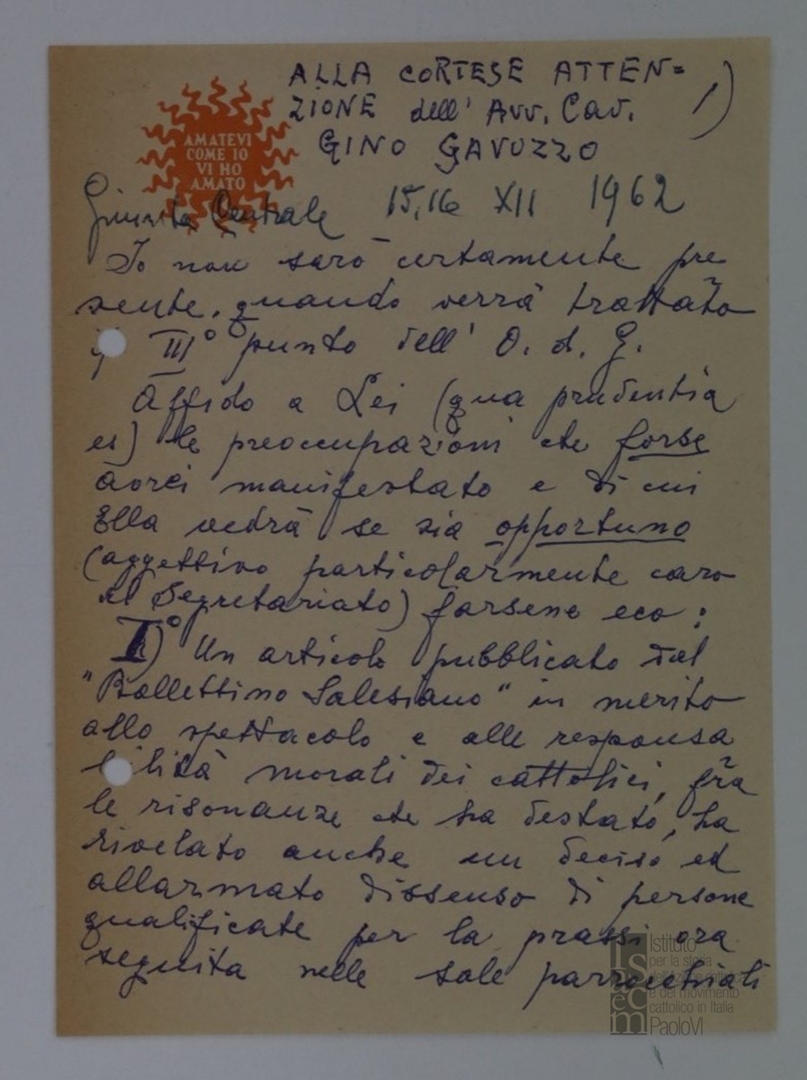 ALLA CORTESE ATTEN=
ZIONE dell' Avv. Cav.
GINO GAVUZZO
1)
AMATEVI
COME IO
VI HO
AMATO
Giunta Centrale 15,16 XII 1962
Io non sarò certamente pre
sente, quando verrà trattato
il III° punto dell' O. d. G.
Affido a Lei (qua prudentia
es) le preoccupazioni che forse
avrei manifestato e di cui
Ella vedrà se sia opportuno
(aggettivo particolarmente caro
al Segretariato) farsene eco:
I)° Un articolo pubblicato dal
"Bollettino Salesiano" in merito
allo spettacolo e alle responsa
bilità morali dei cattolici, fra
le risonanze che ha destato, ha
rivelato anche un deciso ed
allarmato dissenso di persone
qualificate per la prassi ora
seguita nelle sale parrocchiali
Istituto
per la storia
dell'Azione cattolica
e del movimento
cattolico in Italia
PaoloVI